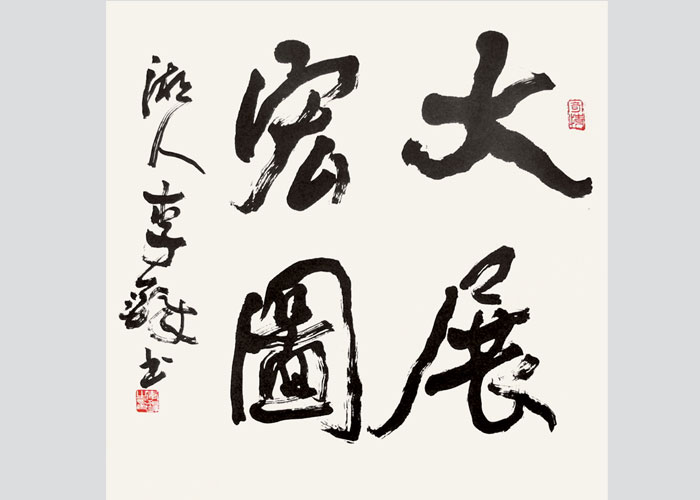 大展
宏圖
湘人李鐸书